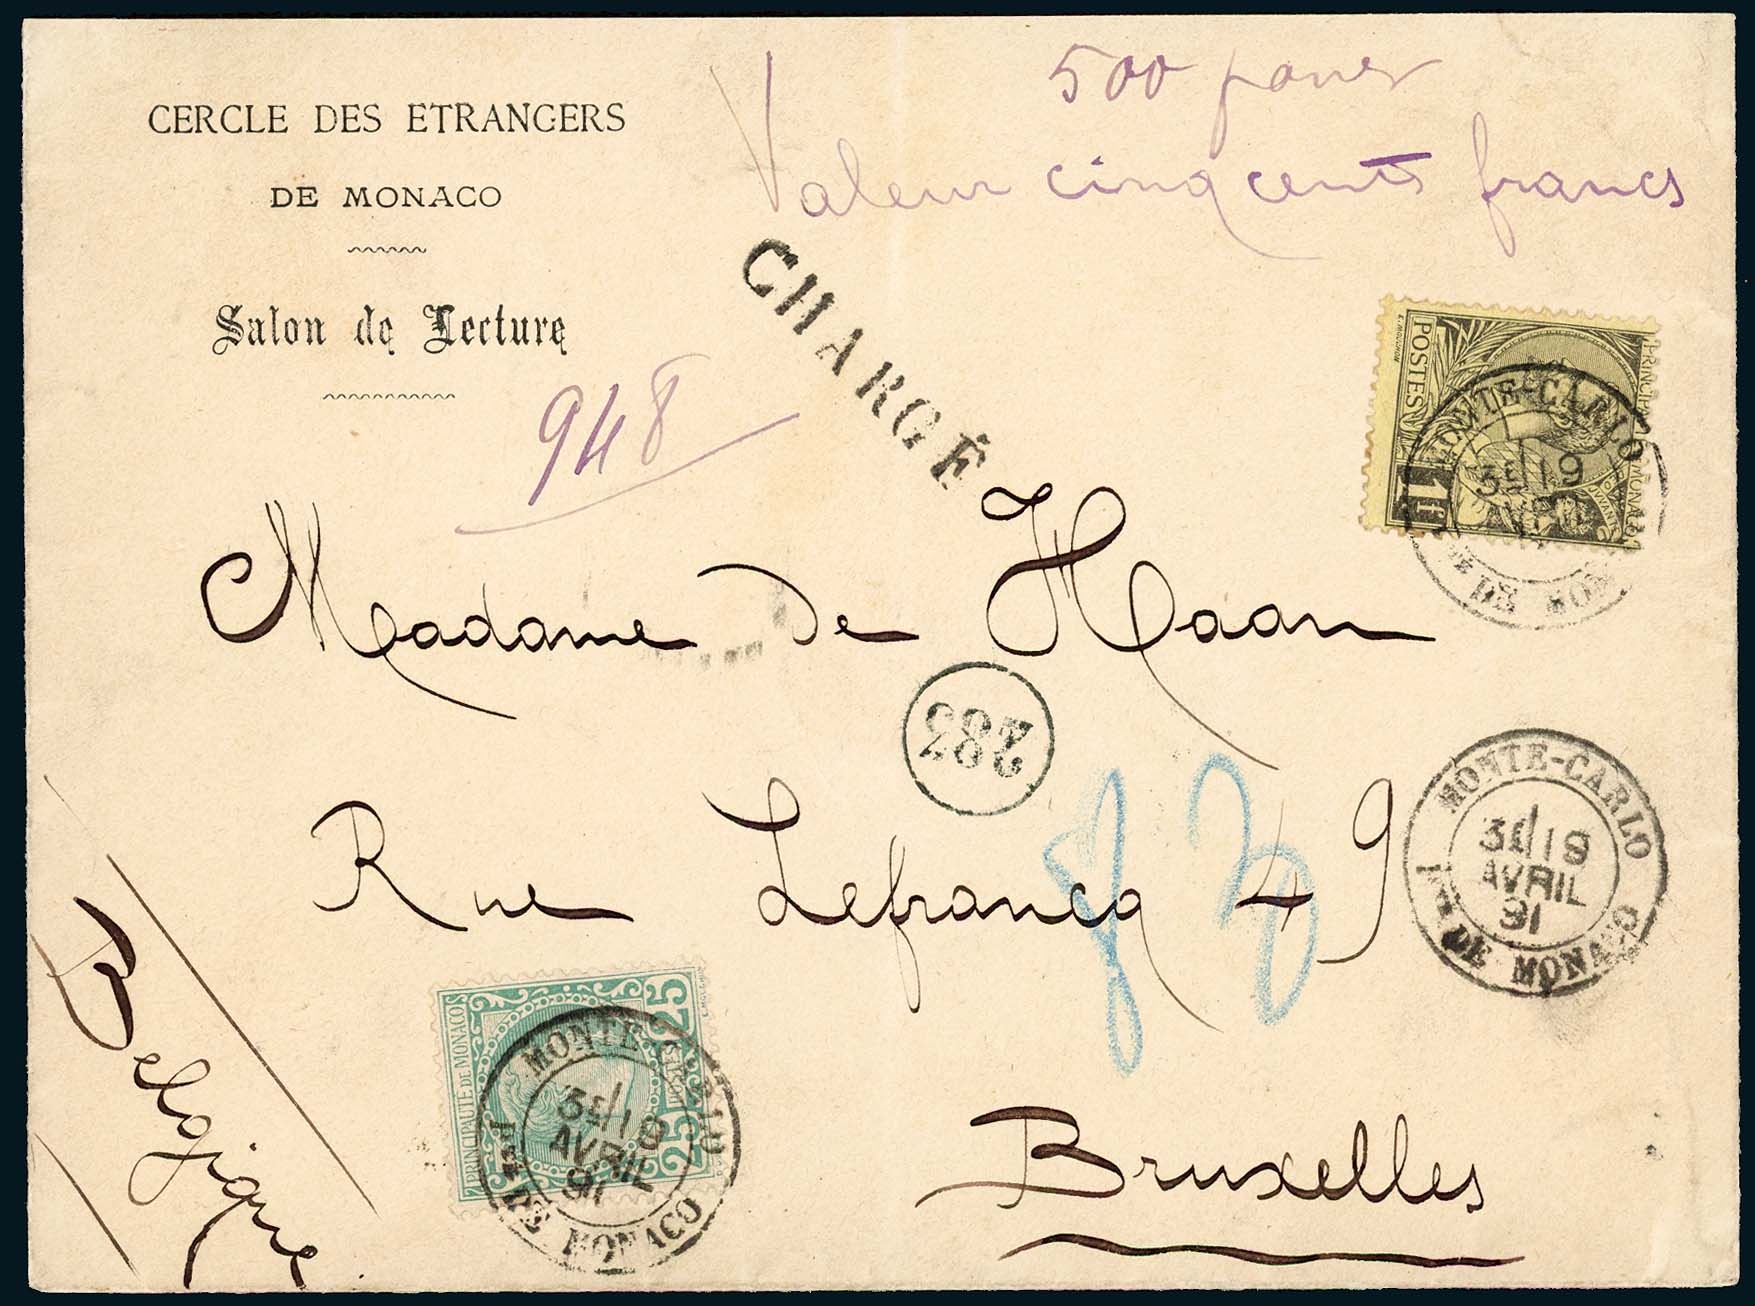 CERCLE DES ETRANGERS
DE MONACO
Salon de Lecture
500 francs
Valeur cinq cents francs
CHARGÉ
948
POSTES
1f
MONTE-CARLO
3E/19
Madame de Haan
283
Rue Lefrancq 49
MONTE-CARLO
3E/19
AVRIL
91
Pté DE MONACO
Belgique
PRINCIPAUTÉ DE MONACO
25
25
25
POSTES
MONTE-CARLO
3E/19
AVRIL
91
Pté DE MONACO
Bruxelles